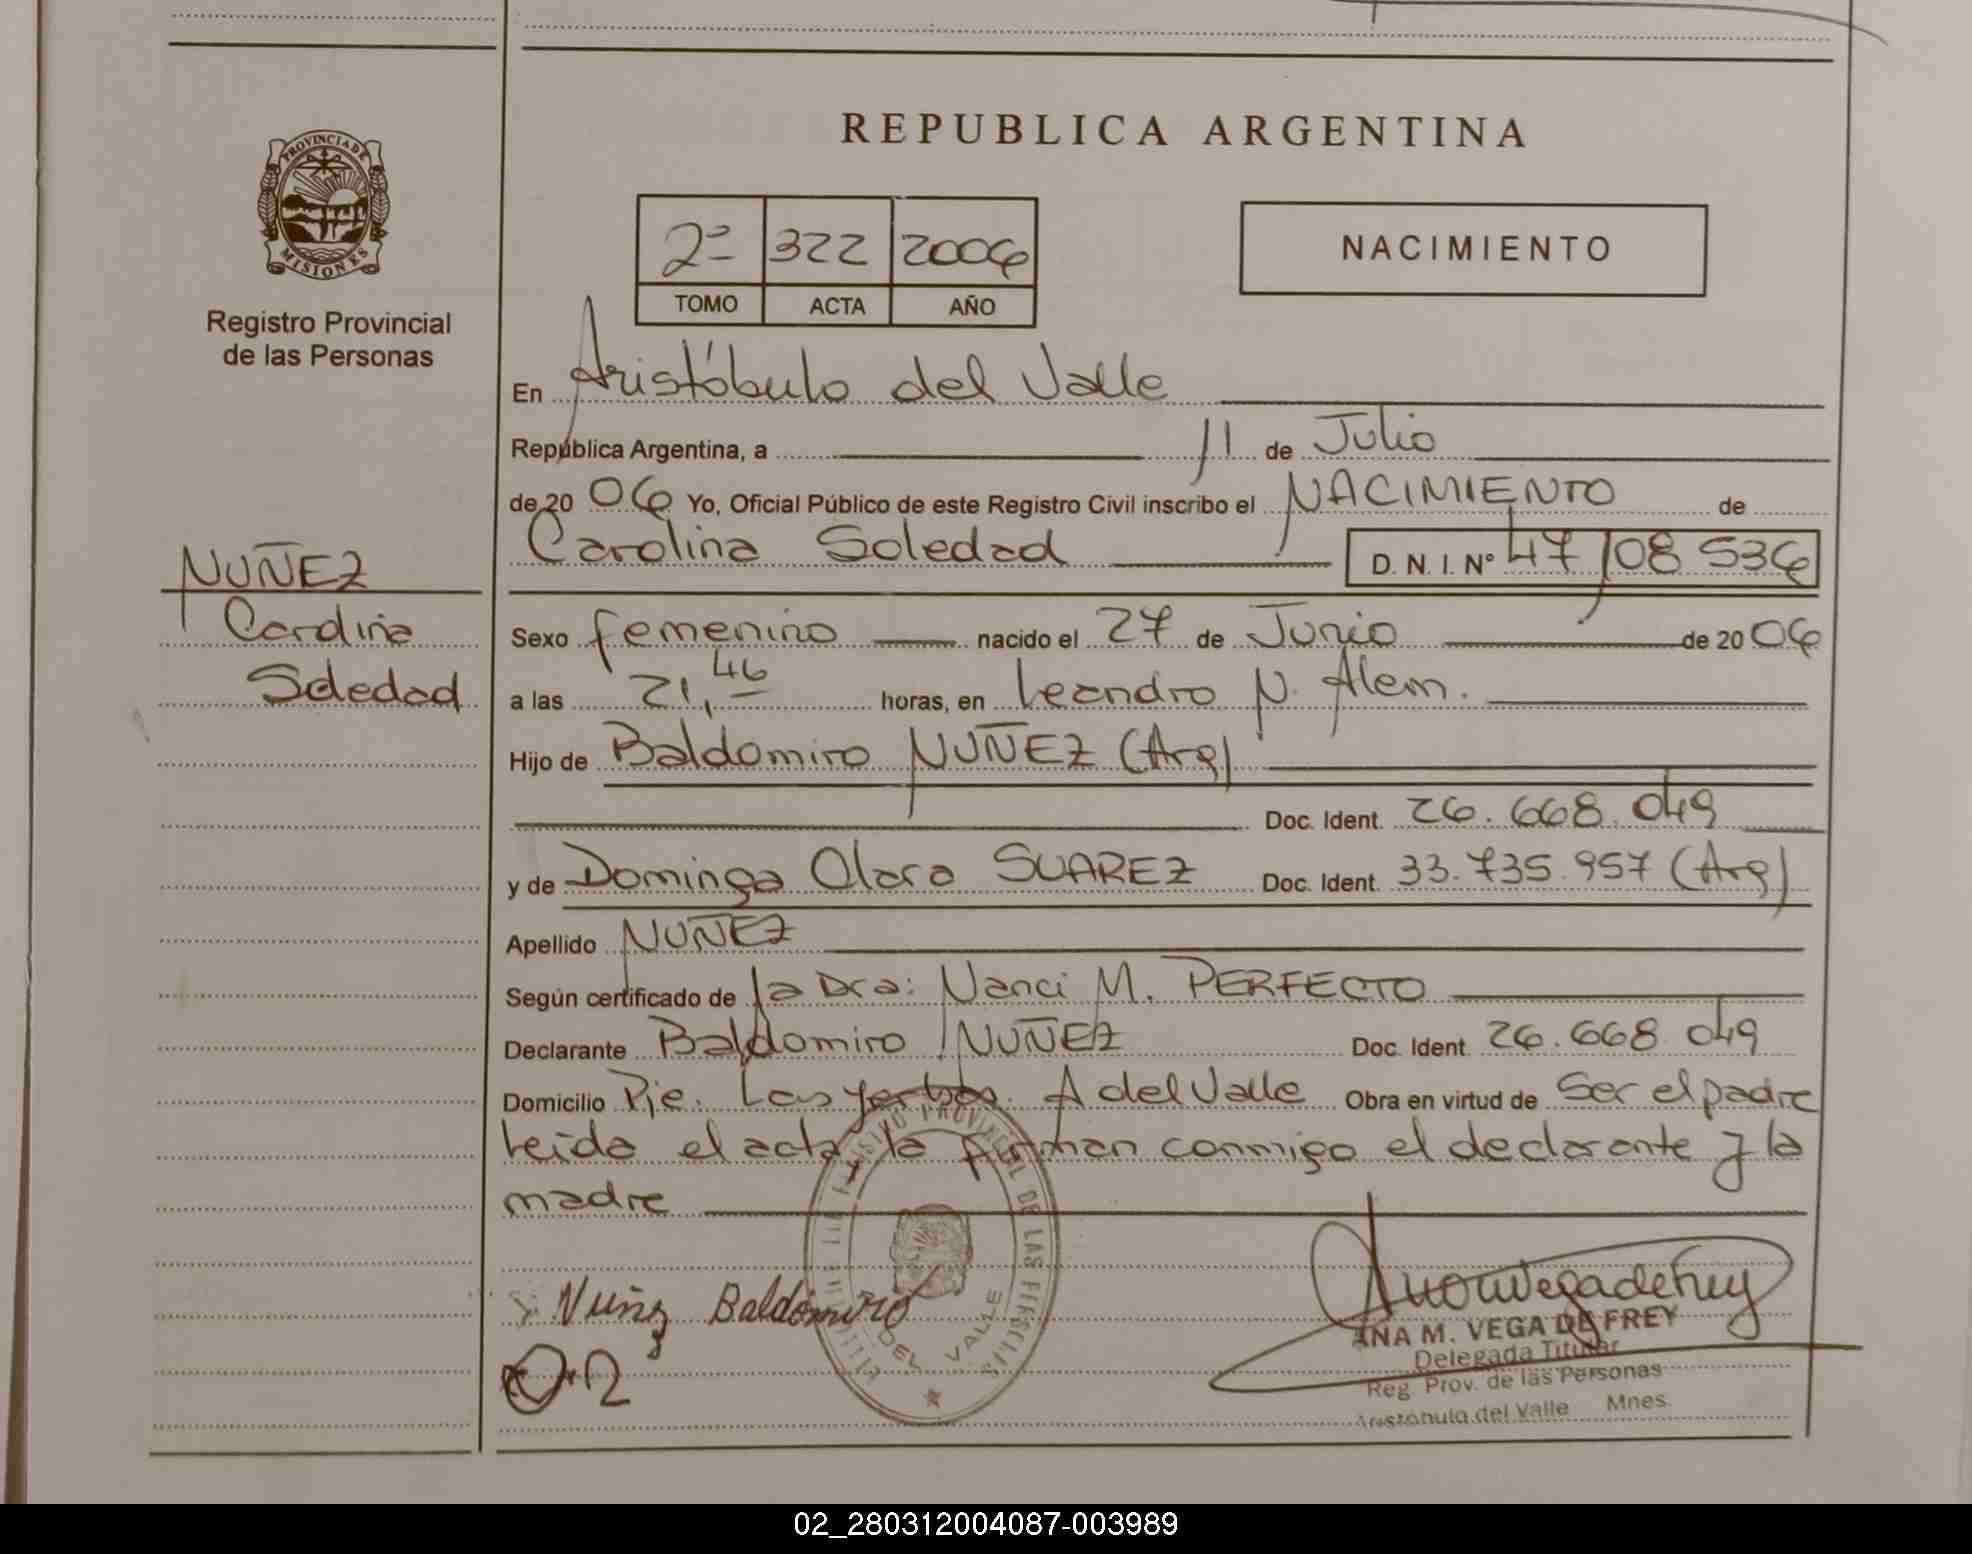 REPUBLICA ARGENTINA
PROVINCIA DE
MISIONES
Registro Provincial
de las Personas
2º 322 2006
TOMO ACTA AÑO
NACIMIENTO
En Aristóbulo del Valle
República Argentina, a 11 de Julio
de 20 06 Yo, Oficial Público de este Registro Civil inscribo el NACIMIENTO de
Carolina Soledad D. N. I. Nº 47108536
NUÑEZ
Carolina
Soledad
Sexo femenino nacido el 27 de Junio de 20 06
a las 21,46 horas, en Leandro N. Alem.
Hijo de Baldomiro NUÑEZ (Arg)
Doc. Ident. 26.668.049
y de Dominga Clara SUAREZ Doc. Ident. 33.735.957 (Arg)
Apellido NUÑEZ
Según certificado de la Dra: Nanci M. PERFECTO
Declarante Baldomiro NUÑEZ Doc. Ident. 26.668.049
Domicilio Pje. Las yerbas. A del Valle Obra en virtud de Ser el padre
leida el acta, la firman conmigo el declarante y la
madre
PROVINCIAL DE LAS PERSONAS
DEL VALLE
Nuñez Baldomiro
ANA M. VEGA DE FREY
Delegada Titular
Reg. Prov. de las Personas
Aristóbulo del Valle Mnes.
02_280312004087-003989